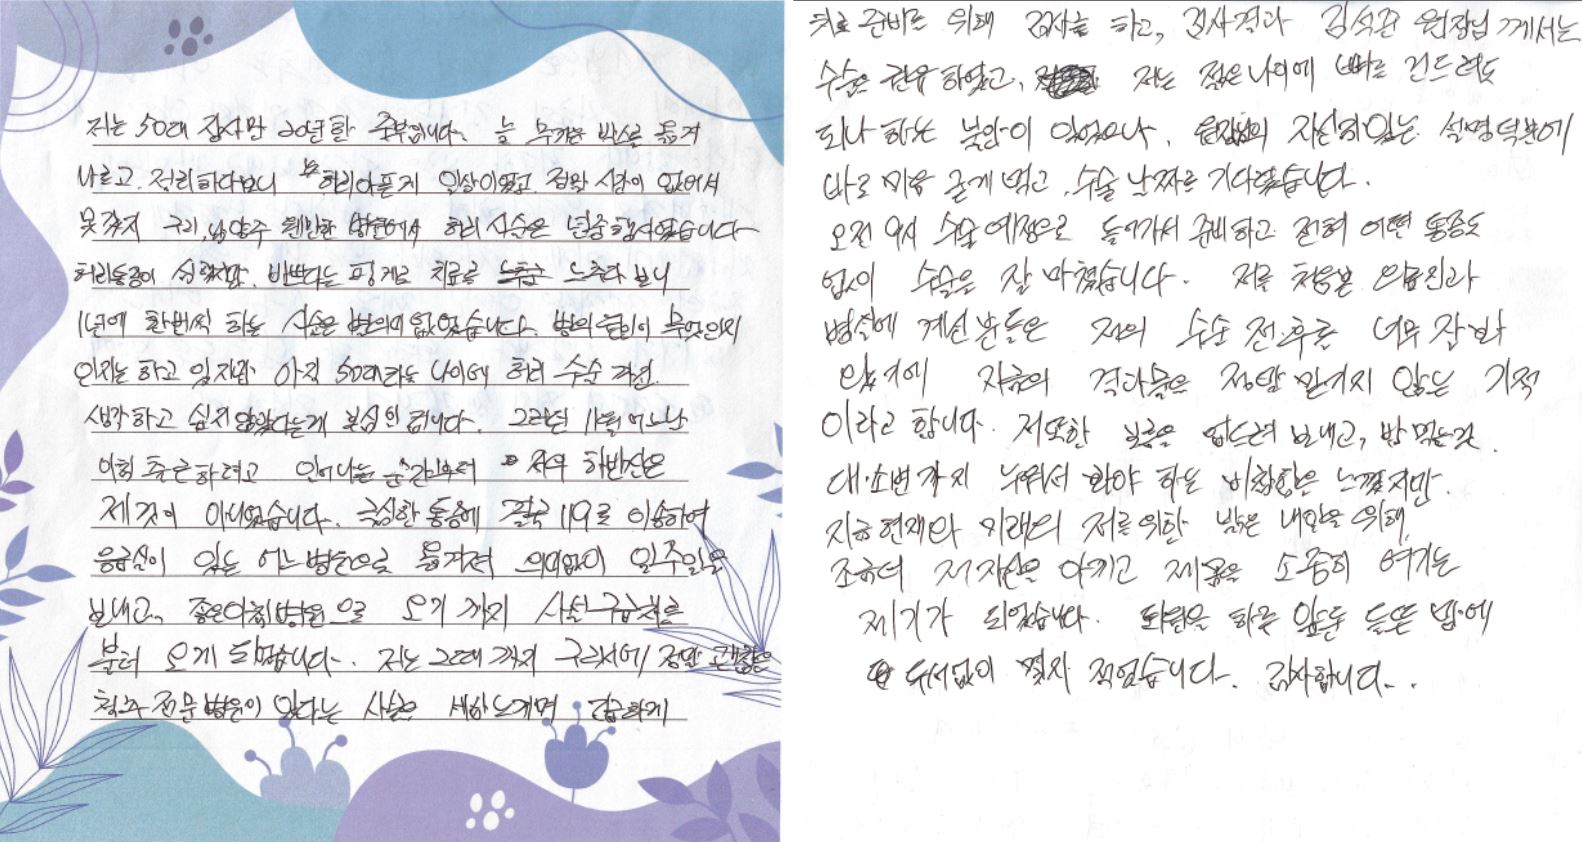 저는 50대 장사만 20년한 주부입니다. 늘 무거운 박스를 옮겨
나르고, 정리하다보니 늘 허리아픈게 일상이였고, 정작 시간이 없어서
못갖지 구리, 남양주 웬만한 병원에서 허리 시술은 년중행사였습니다
허리통증이 심했지만, 바쁘다는 핑계로 치료를 늦추다 보니
1년에 한번씩 하는 시술은 별의미 없었습니다. 병의 원인이 무엇인지
인지는 하고 있지만 아직 50대라는 나이에 허리 수술 까진
생각하고 싶지 않았다는게 본심인 겁니다. 그러던 11월 어느날
아침 출근하려고 일어나는 순간부터 저의 하반신은
제것이 아니였습니다. 극심한 통증에 결국 119로 이송하여
응급실이 있는 어느병원으로 옮겨져 의미없이 일주일을
보내고, 좋은아침병원으로 오기 까지 사설구급차를
불러 오게 되었습니다. 저는 그때 까지 구리시에 정말 괜찮은
척추 전문병원이 있다는 사실은 새삼 느끼며 급하게
치료 준비를 위해 검사를 하고, 검사결과 김석준 원장님 께서는
수술을 권유 하였고, 저는 젊은나이에 뼈를 건드려도
되나 하는 불안이 있었으나, 원장님의 자신감있는 설명덕분에
바로 마음 굳게 먹고, 수술 날짜를 기다렸습니다.
오전 9시 수술 예정으로 들어가서 준비하고 전혀 어떤 통증도
없이 수술을 잘 마쳤습니다. 저를 처음본 의료진과
병실에 계신분들은 저의 수술 전·후를 너무 잘 봐
왔기에 지금의 결과물은 정말 믿기지 않는 기적
이라고 합니다. 저또한 보름을 엎드려 보내고, 밥 먹는것,
대·소변 까지 누워서 봐야 하는 비참함은 느꼈지만,
지금 현재와 미래의 저를 위한 밝은 내일을 위해,
조금더 저 자신을 아끼고 제몸을 소중히 여기는
계기가 되었습니다. 퇴원을 하루 앞둔 들뜬 밤에
두서없이 몇자 적었습니다. 감사합니다..